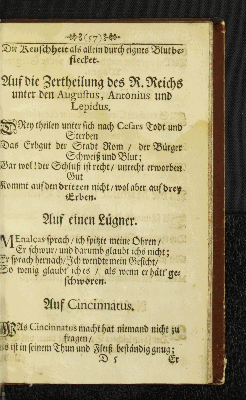 (57)
Die Keuschheit als allein durch eignes Blut be-
flecket.
Auf die Zertheilung des R. Reichs
unter den Augustus, Antonius und
Lepidus.
DRey theilen unter sich nach Cesars Todt und
Sterben
Das Erbgut der Stadt Rom / der Bürger
Schweiß und Blut;
Gar wol! der Schluß ist recht / unrecht erworben
Gut
Kommt auf den dritten nicht / wol aber auf drey
Erben.
Auf einen Lügner.
MEnalcas sprach / ich spitzte meine Ohren /
Er schwur / und darumb glaubt ichs nicht;
Er sprach hernach / Ich wendte mein Gesicht /
So wenig glaubt ich es / als wenn er hätt ge-
schworen.
Auf Cincinnatus.
WAs Cincinnatus macht hat niemand nicht zu
fragen /
ist in seinem Thun und Fleiß beständig gnug;
D 5 Er